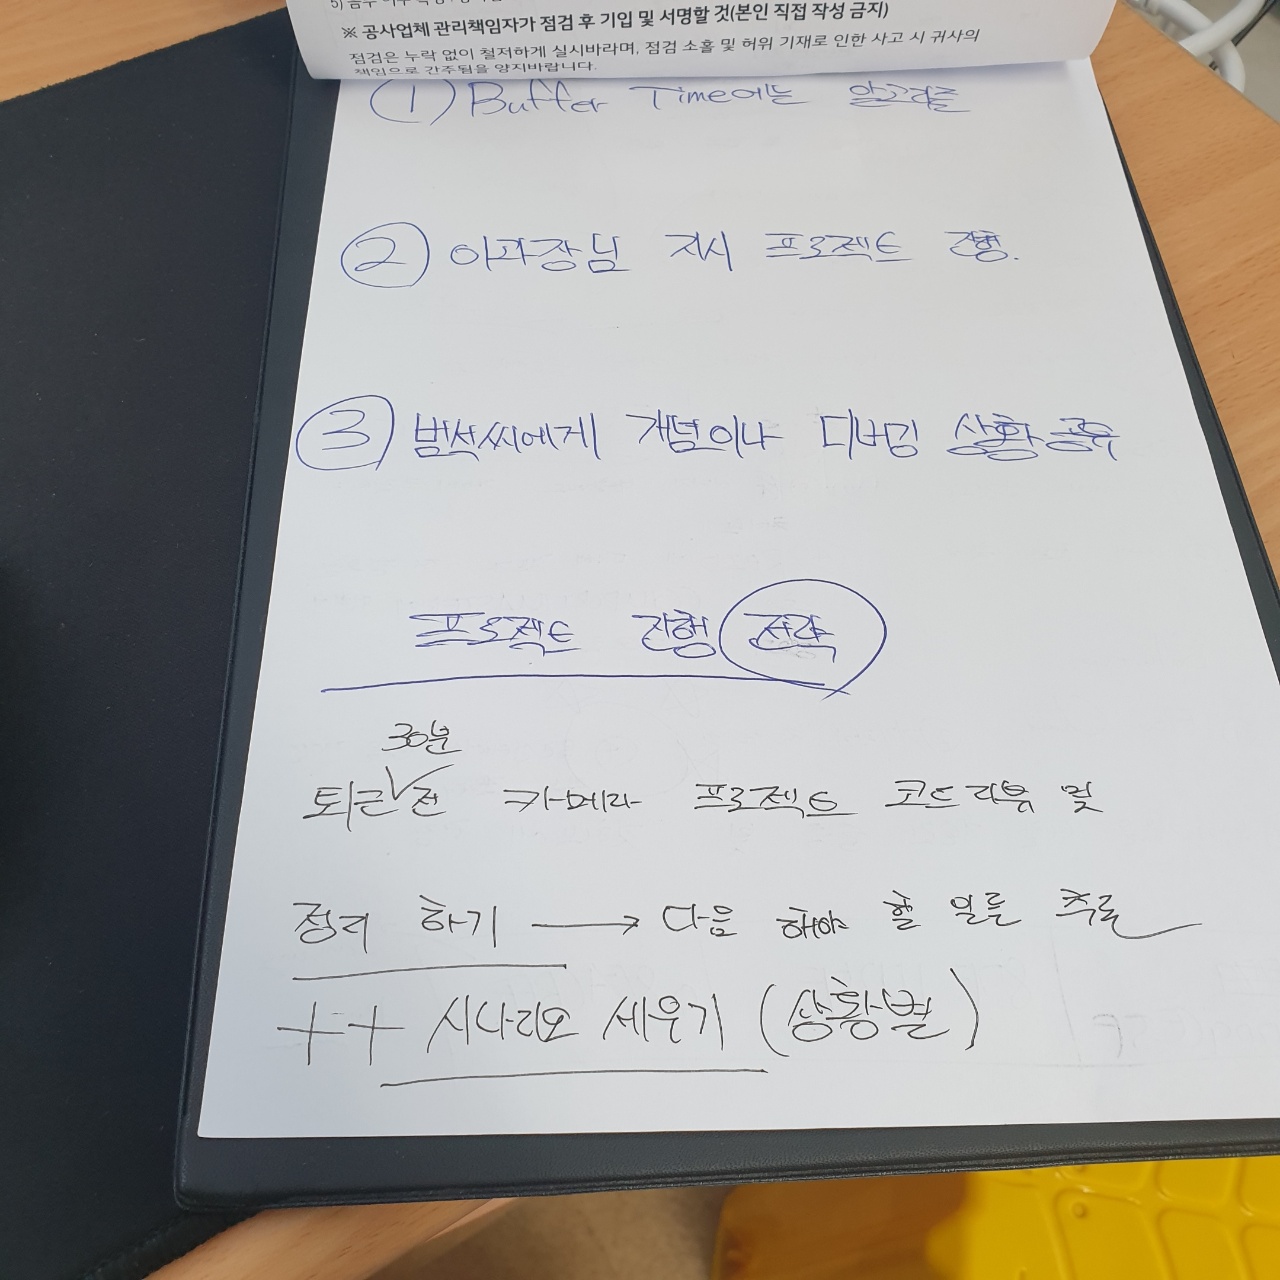 ※ 공사업체 관리책임자가 점검 후 기입 및 서명할 것(본인 직접 작성 금지)
점검은 누락 없이 철저하게 실시바라며, 점검 소홀 및 허위 기재로 인한 사고 시 귀사의
책임으로 간주됨을 양지바랍니다.
① Buffer Time에는 알고리즘
② 이과장님 지시 프로젝트 진행.
③ 범석씨에게 개념이나 디버깅 상황공유
프로젝트 진행 전략
30분
퇴근 전 카메라 프로젝트 코드리뷰 및
정리 하기 → 다음 해야 할 일들 추론
++ 시나리오 세우기 (상황별)